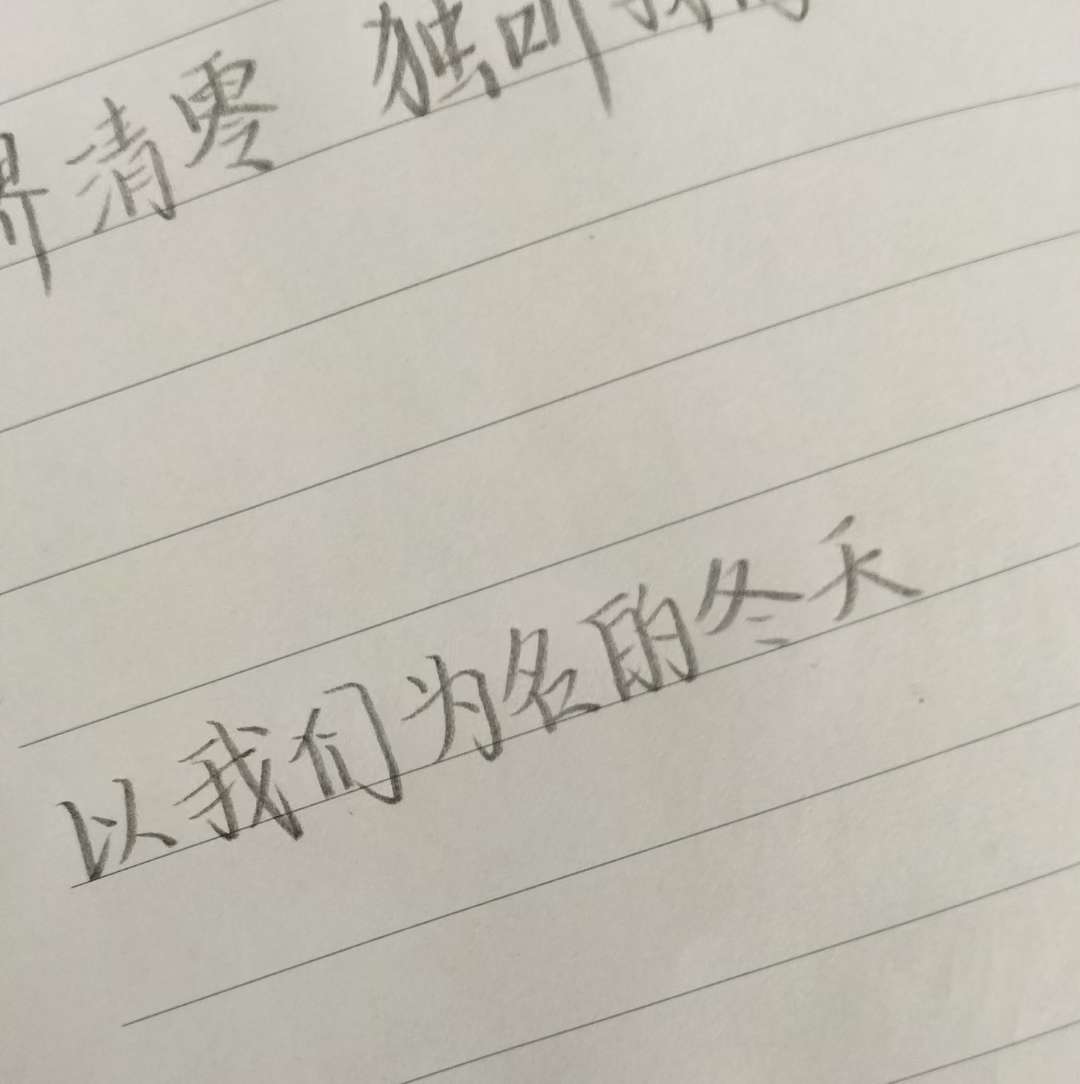 界清零 独叫我们
以我们为名的冬天